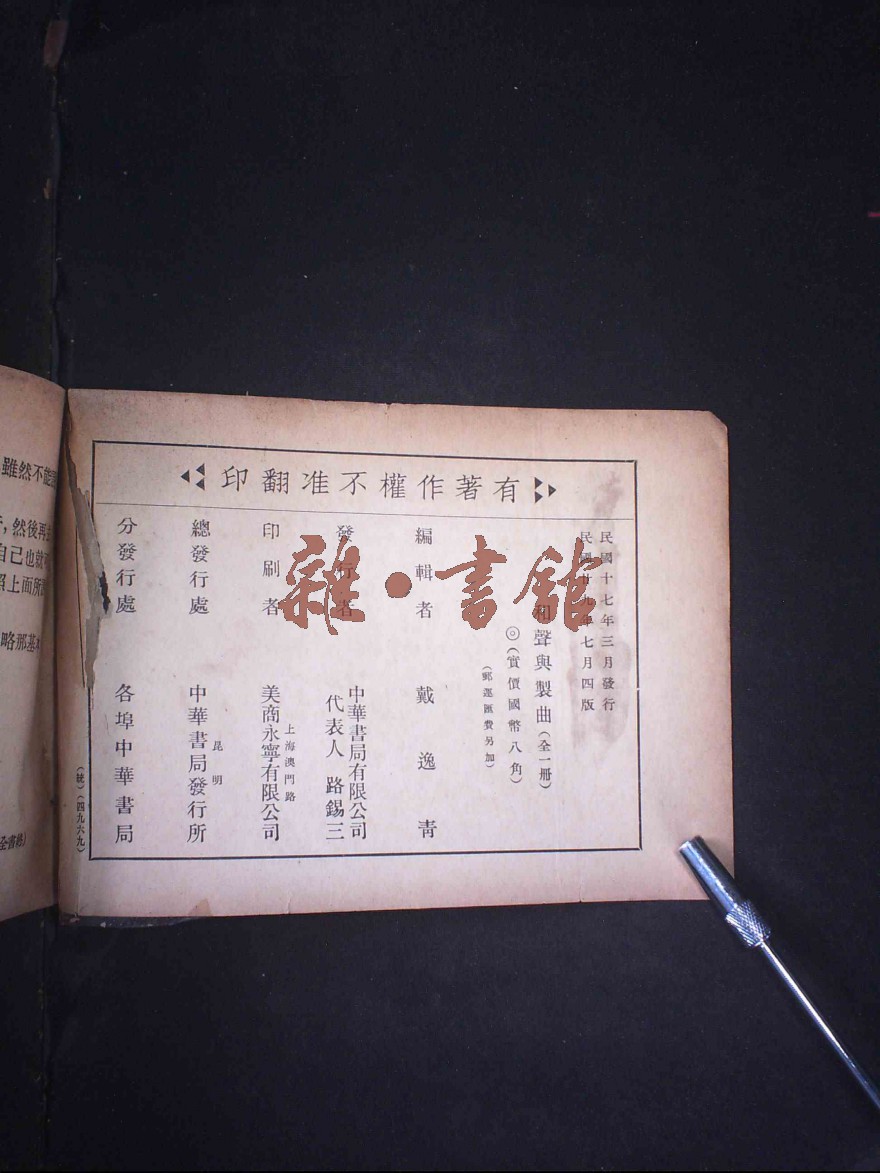 有著作權不准翻印
民國十七年三月發行
民國廿九年七月四版
和聲與製曲(全一册)
◎(實價國幣八角)
(郵運匯費另加)
編輯者 戴逸靑
發行者 中華書局有限公司
代表人 路錫三
印刷者 上海澳門路
美商永寧有限公司
總發行處 昆明
中華書局發行所
分發行處 各埠中華書局
(四九六九)
雜·書館
雖然不能
,然後再
自己也就可
照上面所
略那基